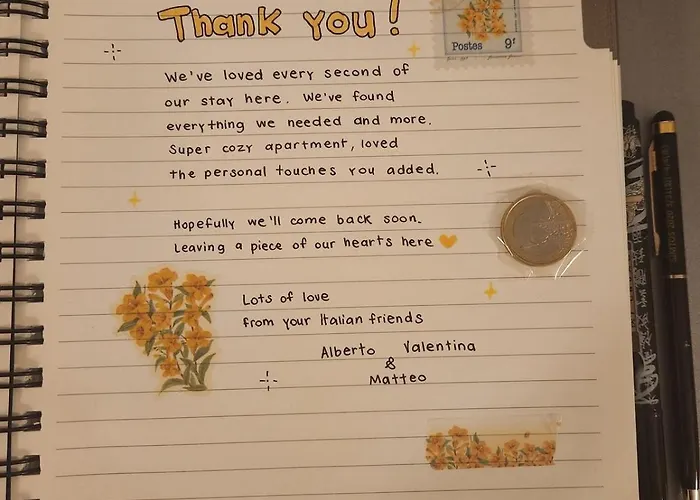 Thank you!
Postes 9f
We've loved every second of
our stay here. We've found
everything we needed and more.
Super cozy apartment, loved
the personal touches you added.
Hopefully we'll come back soon.
Leaving a piece of our hearts here
Lots of love
from your Italian friends
Alberto Valentina
&
Matteo